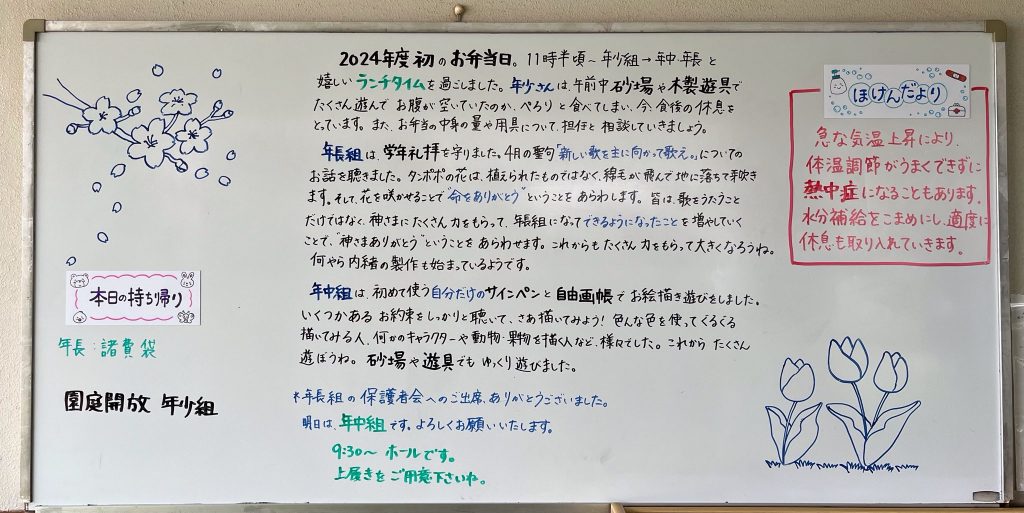 2024年度 初のお弁当日。11時半頃〜年少組→年中・年長と
嬉しいランチタイムを過ごしました。年少さんは、午前中砂場や木製遊具で
たくさん遊んで お腹が空いていたのか、ぺろりと食べてしまい、今、食後の休息を
とっています。また、お弁当の中身の量や用具について、担任と相談していきましょう。
年長組は、学年礼拝を守りました。4月の聖句「新しい歌を主に向かって歌え。」についての
お話を聴きました。タンポポの花は、植えられたものではなく、綿毛が飛んで地に落ちて芽吹き
ます。そして、花を咲かせることで"命をありがとう"ということをあらわします。皆は、歌をうたうこと
だけではなく、神さまにたくさん力をもらって、年長組になってできるようになったことを増やしていく
ことで、"神さまありがとう"ということを あらわせます。これからもたくさん力をもらって大きくなろうね。
何やら内緒の製作も始まっているようです。
年中組は、初めて使う自分だけのサインペンと自由画帳でお絵描き遊びをしました。
いくつかある お約束をしっかりと聴いて、さあ描いてみよう! 色んな色を使ってぐるぐる
描いてみる人、何かのキャラクターや動物・果物を描く人など、様々でした。これから たくさん
遊ぼうね。砂場や遊具でも ゆっくり遊びました。
*年長組の保護者会へのご出席、ありがとうございました。
明日は、年中組です。よろしくお願いいたします。
9:30〜 ホールです。
上履きをご用意下さいね。
本日の持ち帰り
年長:諸費袋
園庭開放 年少組
ほけんだより
急な気温上昇により、
体温調節がうまくできずに
熱中症になることもあります。
水分補給をこまめにし、適度に
休息も取り入れていきます。